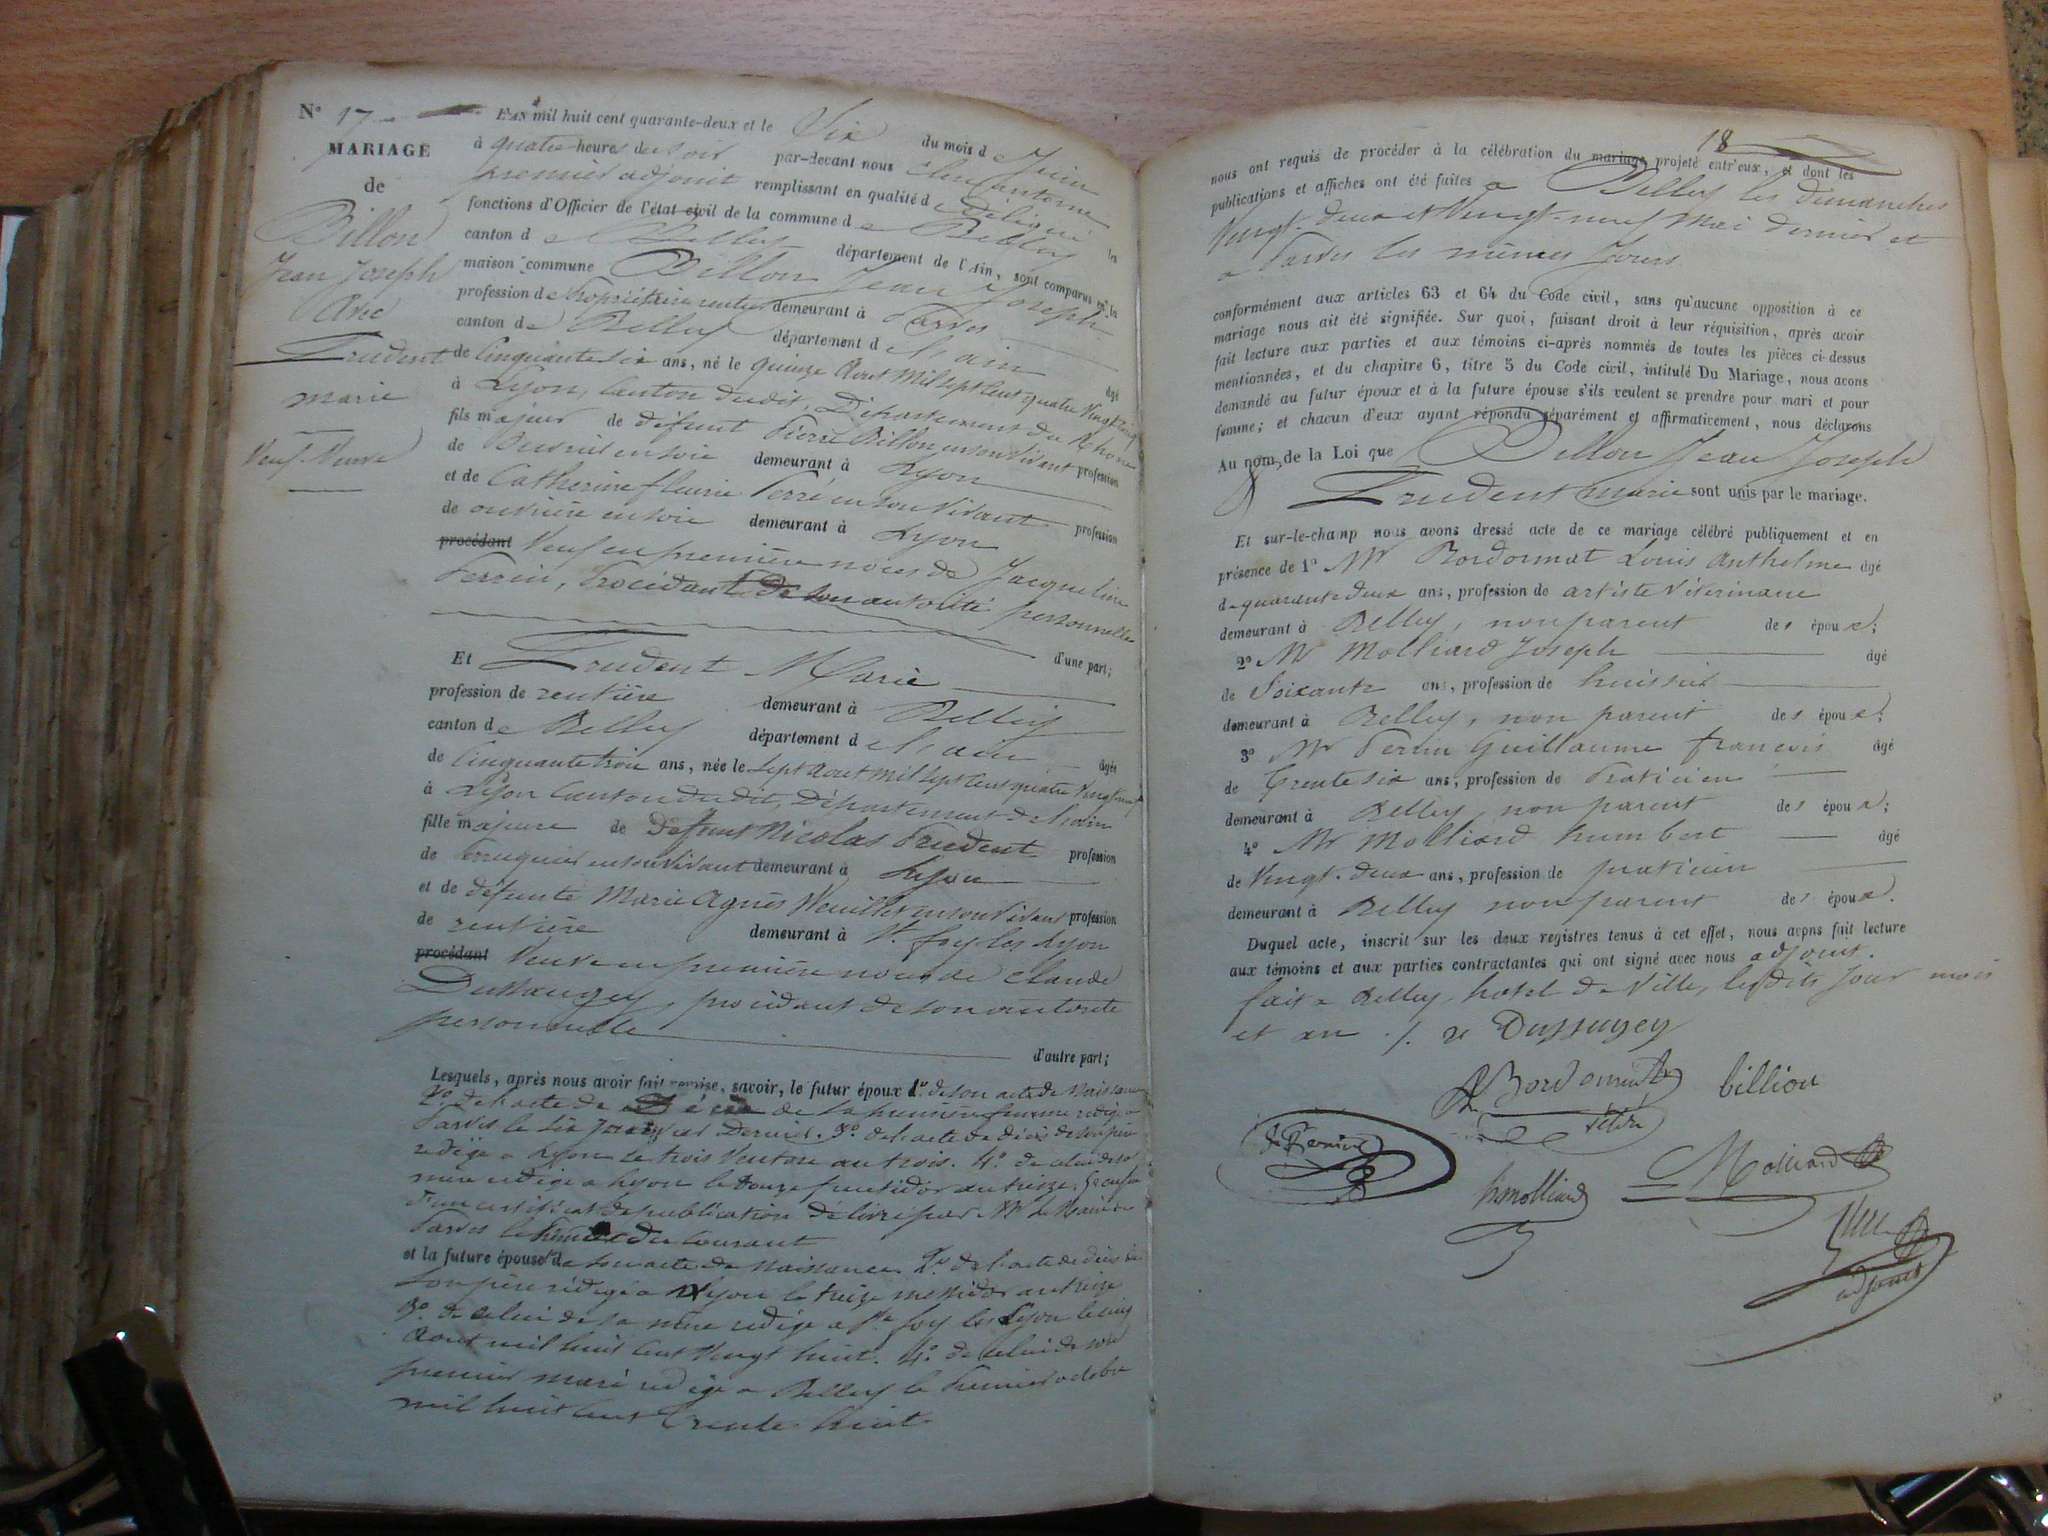 N° 17
MARIAGE
de
Billon
Jean Joseph
Avec
Prudent
marie
Veuf-Veuve
L'AN mil huit cent quarante-deux et le Six du mois de Juin
à quatre heures du soir par-devant nous
premier adjoint remplissant en qualité de Délégué les
fonctions d'Officier de l'état civil de la commune de Belley
canton de Belley département de l'Ain, sont comparus en la
maison commune Billon Jean Joseph
profession de Propriétaire rentier demeurant à Parves
canton de Belley département de l'ain
âgé de Cinquante six ans, né le quinze Aout Mil sept Cent quatre Vingt
à Lyon, Canton dudit, Département du Rhone
fils majeur de défunt Pierre Billon en son Vivant profession
de Ouvrier en soie demeurant à Lyon
et de Catherine fleurie Ferré en son Vivant profession
de ouvrière en soie demeurant à Lyon
procédant Veuf en première noces de Jacqueline
Perrin, Procédant de son autorité personnelle
d'une part;
Et Prudent Marie
profession de rentière demeurant à Belley
canton de Belley département de l'ain
âgée de Cinquante trois ans, née le Sept Aout Mil Sept Cent quatre Vingt neuf
à Lyon Canton dudit, Département de l'ain
fille majeure de Défunt Nicolas Prudent profession
de Perruquier en son Vivant demeurant à Lyon
et de défunte Marie Agnès en son Vivant profession
de rentière demeurant à Ste foy les Lyon
procédant Veuve en première noces de Claude
Dussaugey, procédant de son autorité
personnelle
d'autre part;
Lesquels, après nous avoir fait remise, savoir, le futur époux 1° de son acte de Naissance
2° de l'acte de Décès de la première femme rédigé a
Parves le Six Janvier Dernier. 3° de l'acte de décès de son père
rédigé a Lyon le trois Ventose an trois. 4° de celui de sa
mère rédigé a Lyon le Douze fructidor an treize; 5° enfin
d'un certificat de publication délivré par Mr le Maire de
Parves le du Courant
et la future épouse 1° de son acte de Naissance 2° de l'acte de décès de
son père rédigé a Lyon le treize messidor an treize
3° de celui de sa mère rédigé a Ste foy les Lyon le cinq
Aout mil huit Cent Vingt huit. 4° de celui de son
premier mari rédigé a Belley le Premier octobre
mil huit Cent Trente huit
18
nous ont requis de procéder à la célébration du mariage projeté entr'eux, et dont les
publications et affiches ont été faites a Belley les dimanches
Vingt-deux et Vingt-neuf Mai dernier et
a Parves les mêmes Jours
conformément aux articles 63 et 64 du Code civil, sans qu'aucune opposition à ce
mariage nous ait été signifiée. Sur quoi, faisant droit à leur réquisition, après avoir
fait lecture aux parties et aux témoins ci-après nommés de toutes les pièces ci-dessus
mentionnées, et du chapitre 6, titre 5 du Code civil, intitulé Du Mariage, nous avons
demandé au futur époux et à la future épouse s'ils veulent se prendre pour mari et pour
femme; et chacun d'eux ayant répondu séparément et affirmativement, nous déclarons
Au nom de la Loi que Billon Jean Joseph
& Prudent Marie sont unis par le mariage.
Et sur-le-champ nous avons dressé acte de ce mariage célébré publiquement et en
présence de 1° Mr Bordonnat Louis Anthelme âgé
de quarante deux ans, profession de artiste Vétérinaire
demeurant à Belley, non parent des époux;
2° Mr Molliard Joseph âgé
de Soixante ans, profession de huissier
demeurant à Belley, non parent des époux;
3° Mr Perrin Guillaume françois âgé
de Trente six ans, profession de Praticien
demeurant à Belley, non parent des époux;
4° Mr Molliard humbert âgé
de Vingt-deux ans, profession de praticien
demeurant à Belley non parent des époux.
Duquel acte, inscrit sur les deux registres tenus à cet effet, nous avons fait lecture
aux témoins et aux parties contractantes qui ont signé avec nous adjoint.
fait a Belley, hotel de Ville, lesdits Jour mois
et an ./. ve Dussugey
Bordonnat billion
vétre
Perrin
h molliard Molliard
adjoint